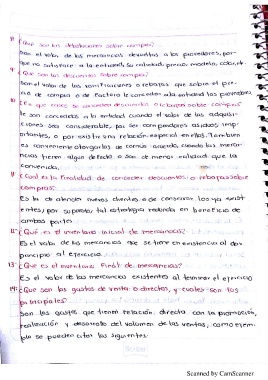 8¿Que son las devoluciones sobre compra?
Son el valor de las mercancias devueltas a los proveedores, por-
que no satisface a la entidad su calidad, precio, modelo, color, etc.
9¿Que son los descuentos sobre compra?
Son el valor de las bonificaciones o rebajas que sobre el pre-
cio de compra o de factura le conceden a la entidad los proveedores.
10¿En que casos se conceden descuentos o rebajas sobre compras?
le son concedidos a la entidad cuando el valor de las adquisi-
ciones sea considerable, por ser compradores asiduos, imp-
ortantes, o por existir una relación especial en ellos. Tambien
es conveniente otorgarlos de comun acuerdo, cuando las mercan-
cias tienen algun defecto o son de menor calidad que la
convenida.
11¿Cual es la finalidad de conceder descuentos o rebajas sobre
compras?
Es la de atender nuevos clientes o de conservar los ya exist
entes; por supuesto tal estrategia redunda en beneficio de
ambas partes.
12¿Qué es el inventario inicial de mercancias?
Es el valor de las mercancias que se tiene en existencia al dar
principio al ejercicio.
13¿Que es el inventario Final de mercancias?
Es el valor de las mercancias existentes al terminar el ejercicio
14¿Que son los gastos de venta o directos, y cuales son los
principales?
Son los gastos que tienen relación directa con la promoción,
realización y desarrollo del volumen de las ventas, como ejem-
plo se pueden citar los siguientes:
Scanned by CamScanner